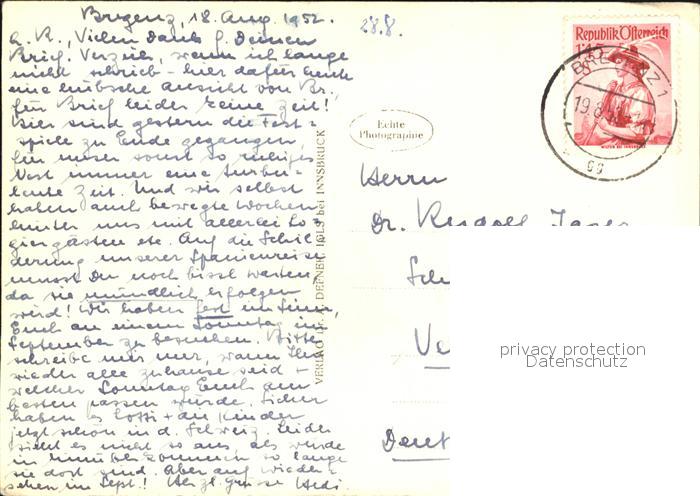 Bregenz, 18. Aug. 1952.
28.8.
L. R., Vielen Dank f. Deinen
Brief. Verzeih, wenn ich lange
nicht schrieb - hier dafür heute
eine hübsche Ansicht von Br.,
für Brief leider keine Zeit!
Hier sind gestern die Fest=
spiele zu Ende gegangen,
für unser sonst so ruhiges
Nest immer eine turbu=
lente Zeit. Und wir selbst
haben auch bewegte Wochen
hinter uns mit allerlei Lo=
giergästen etc. Auf die Schil=
derung unserer Spanienreise
musst Du noch bissl warten,
da sie mündlich erfolgen
wird! Wir haben fest im Sinn,
Euch an einem Sonntag im
September zu besuchen. Bitte
schreibe mir nur, wann Ihr
wieder alle zuhause seid +
welcher Sonntag Euch am
besten passen würde. Sicher
haben es Lotti + die Kinder
jetzt schön in d. Schweiz. Leider
sieht es nicht so aus, als würde
ich hinüberkommen so lange
sie dort sind. Aber auf wieder=
sehen im Sept.! Herzl. Grüsse Hedi.
Echte
Photographie
IGLS bei INNSBRUCK
Republik Österreich
1.45
BREGENZ 1
19.8.
Herrn
Dr. Rudolf
privacy protection
Datenschutz